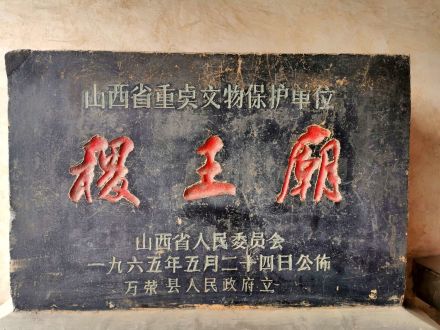 山西省重点文物保护单位
稷王廟
山西省人民委员会
一九六五年五月二十四日公佈
万荣县人民政府立